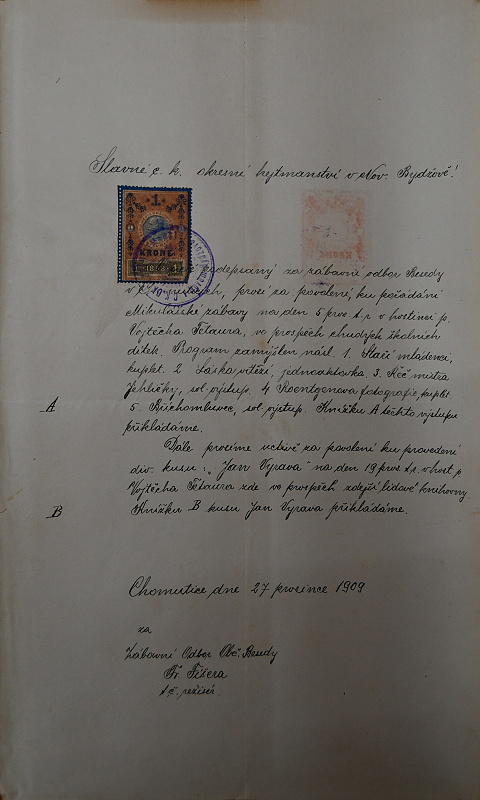 Slavné c. k. okresní hejtmanství v Nov. Bydžově!
1
KRONE
1898
KRONE
podepsaný za zábavní odbor Besedy
v Chomuticích, prosí za povolení, ku pořádání
Mikulášské zábavy na den 5 pros. t. r. v hostinci p.
Vojtěcha Fetaura, ve prospěch chudých školních
dítek. Program zamýšlen násl. 1. Staří mládenci,
kuplet. 2 Láska vítězí, jednoaktovka. 3. Řeč mistra
Jehličky, sol. výstup. 4 Roentgenova fotografie, kuplet.
A
5. Břichomluvec, sol. výstup. Knížku A těchto výstupů
přikládáme.
Dále prosíme uctivě za povolení ku provedení
div. kusu: „Jan Výrava" na den 19 pros. t. r. v host. p.
Vojtěcha Fetaura zde ve prospěch zdejší lidové knihovny
B
Knížku B kusu Jan Výrava přikládáme.
Chomutice dne 27 prosince 1909
za
Zábavní Odbor Obč. Besedy
Fr. Fišera
t. č. režisér